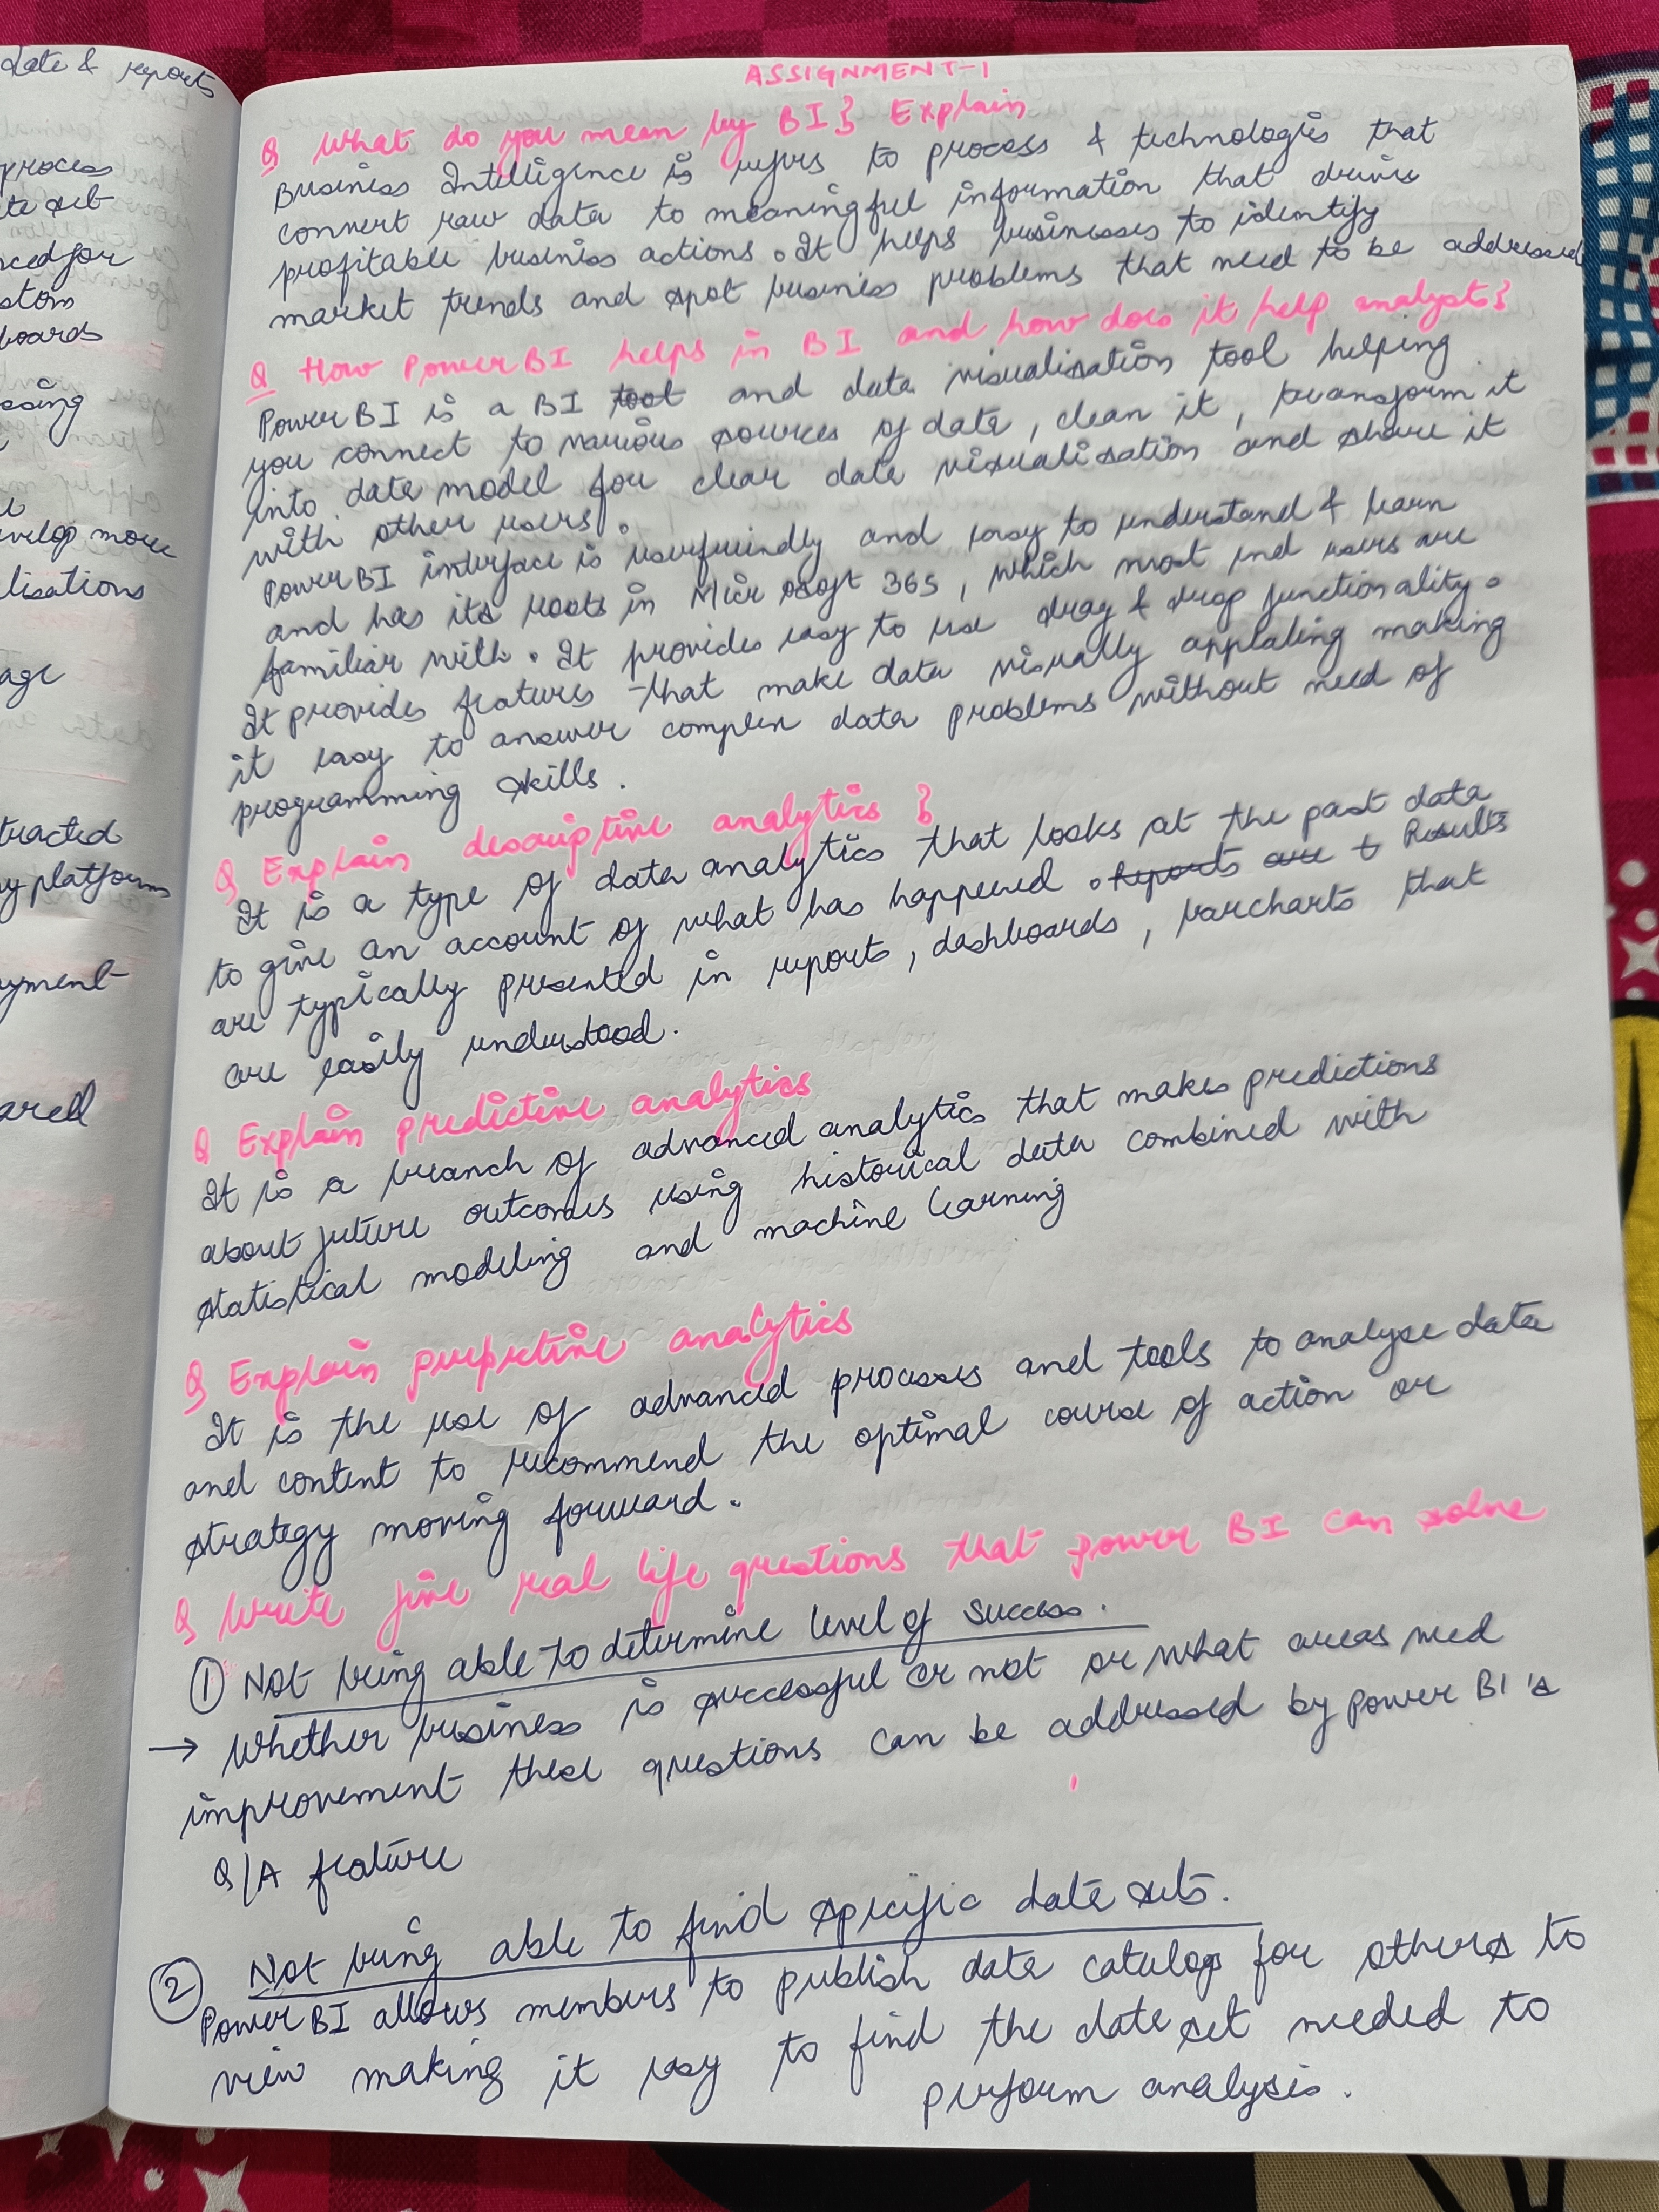 date & reports
process
te set
ced for
stom
boards
essing
evelop more
lisations
age
tracted
y platform
yment
ared
ASSIGNMENT-1
Q What do you mean by BI} Explain
Business Intelligence is refers to process & technologies that
convert raw data to meaningful information that drives
profitable business actions. It helps businesses to identify
market trends and spot business problems that need to be addressed
Q How Power BI helps in BI and how does it help analysts}
Power BI is a BI tool and data visualisation tool helping
you connect to various sources of data, clean it, transform it
into data model for clear data visualisation and share it
with other users.
Power BI interface is userfriendly and easy to understand & learn
and has its roots in Microsoft 365, which most end users are
familiar with. It provides easy to use drag & drop functionality.
It provides features that make data visually appealing making
it easy to answer complex data problems without need of
programming skills.
Q Explain descriptive analytics }
It is a type of data analytics that looks at the past data
to give an account of what has happened. Reports are t Results
are typically presented in reports, dashboards, barcharts that
are easily understood.
Q Explain predictive analytics
It is a branch of advanced analytics that makes predictions
about future outcomes using historical data combined with
statistical modeling and machine learning
Q Explain perpretive analytics
It is the use of advanced processes and tools to analyse data
and content to recommend the optimal course of action or
strategy moving forward.
Q Write five real life questions that power BI can solve
① Not being able to determine level of success.
→ Whether business is successful or not or what areas need
improvement these questions can be addressed by power BI's
Q/A feature
② Not being able to find specific data sets.
Power BI allows members to publish data catalogs for others to
view making it easy to find the data set needed to
perform analysis.